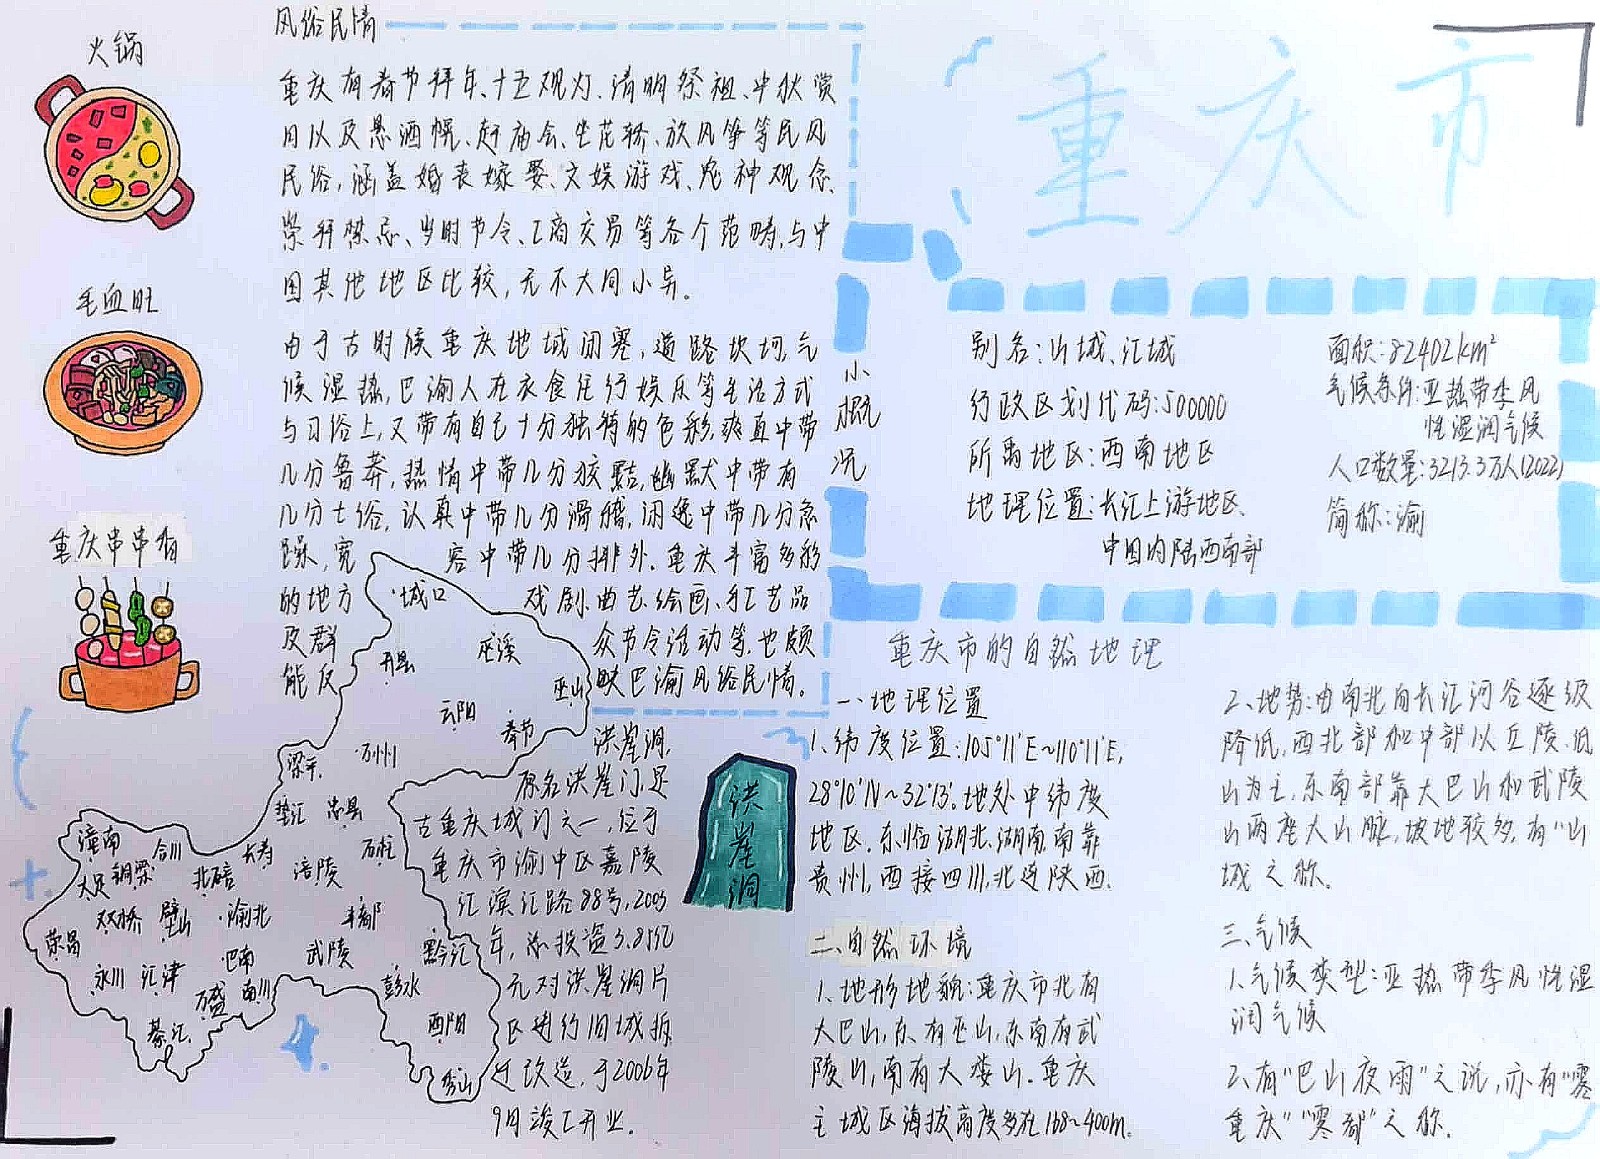 重庆市
火锅
毛血旺
重庆串串香
风俗民情
重庆有春节拜年、十五观灯、清明祭祖、中秋赏
月以及悬酒幌、赶庙会、坐花轿、放风筝等民风
民俗,涵盖婚丧嫁娶、文娱游戏、鬼神观念、
崇拜禁忌、岁时节令、工商交易等各个范畴,与中
国其他地区比较,无不大同小异。
由于古时候重庆地域闭塞,道路坎坷,气
候湿热,巴渝人在衣食住行娱乐等生活方式
与习俗上,又带有自己十分独特的色彩,爽直中带
几分鲁莽,热情中带几分狡黠,幽默中带有
几分士俗,认真中带几分滑稽,闲逸中带几分急
躁,宽容中带几分排外.重庆丰富多彩
的地方戏剧、曲艺、绘画、手工艺品
及群众节令活动等,也颇
能反映巴渝风俗民情。
城口
巫溪
开县
巫山
云阳
奉节
万州
梁平
垫江
忠县
石柱
潼南
合川
长寿
铜梁
大足
北碚
涪陵
双桥
璧山
渝北
丰都
荣昌
巴南
武陵
黔江
永川
江津
万盛
南川
彭水
綦江
酉阳
秀山
洪崖洞,
原名洪崖门,是
古重庆城门之一,位于
重庆市渝中区嘉陵
江滨江路88号,2005
年,总投资3.85亿
元对洪崖洞片
区进行旧城拆
迁改造,于2006年
9月竣工开业.
洪崖洞
小概况
别名:山城、江城
行政区划代码:500000
所属地区:西南地区
地理位置:长江上游地区、
中国内陆西南部
面积:82402km²
气候条件:亚热带季风
性湿润气候
人口数量:3213.3万人(2022)
简称:渝
重庆市的自然地理
一、地理位置
1.纬度位置:105°11′E~110°11′E,
28°10′N~32°13′.地处中纬度
地区.东临湖北、湖南,南靠
贵州,西接四川,北连陕西.
二、自然环境
1.地形地貌:重庆市北有
大巴山,东有巫山,东南有武
陵山,南有大娄山.重庆
主城区海拔高度多在168~400m.
2.地势:由南北向长江河谷逐级
降低,西北部和中部以丘陵、低
山为主,东南部靠大巴山和武陵
山两座大山脉,坡地较多,有"山
城"之称.
三、气候
1.气候类型:亚热带季风性湿
润气候
2.有"巴山夜雨"之说,亦有"雾
重庆""雾都"之称.